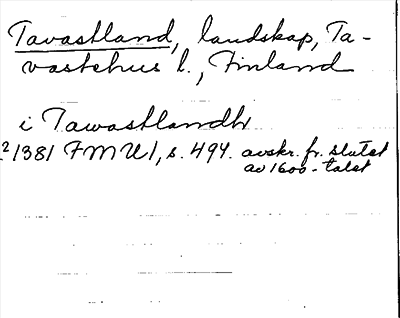 Tavastland, landskap, Ta-
vastehus l., Finland
i Tawastlandh
2/1381 FMU 1, s. 494. avskr. fr. slutet
av 1600-talet